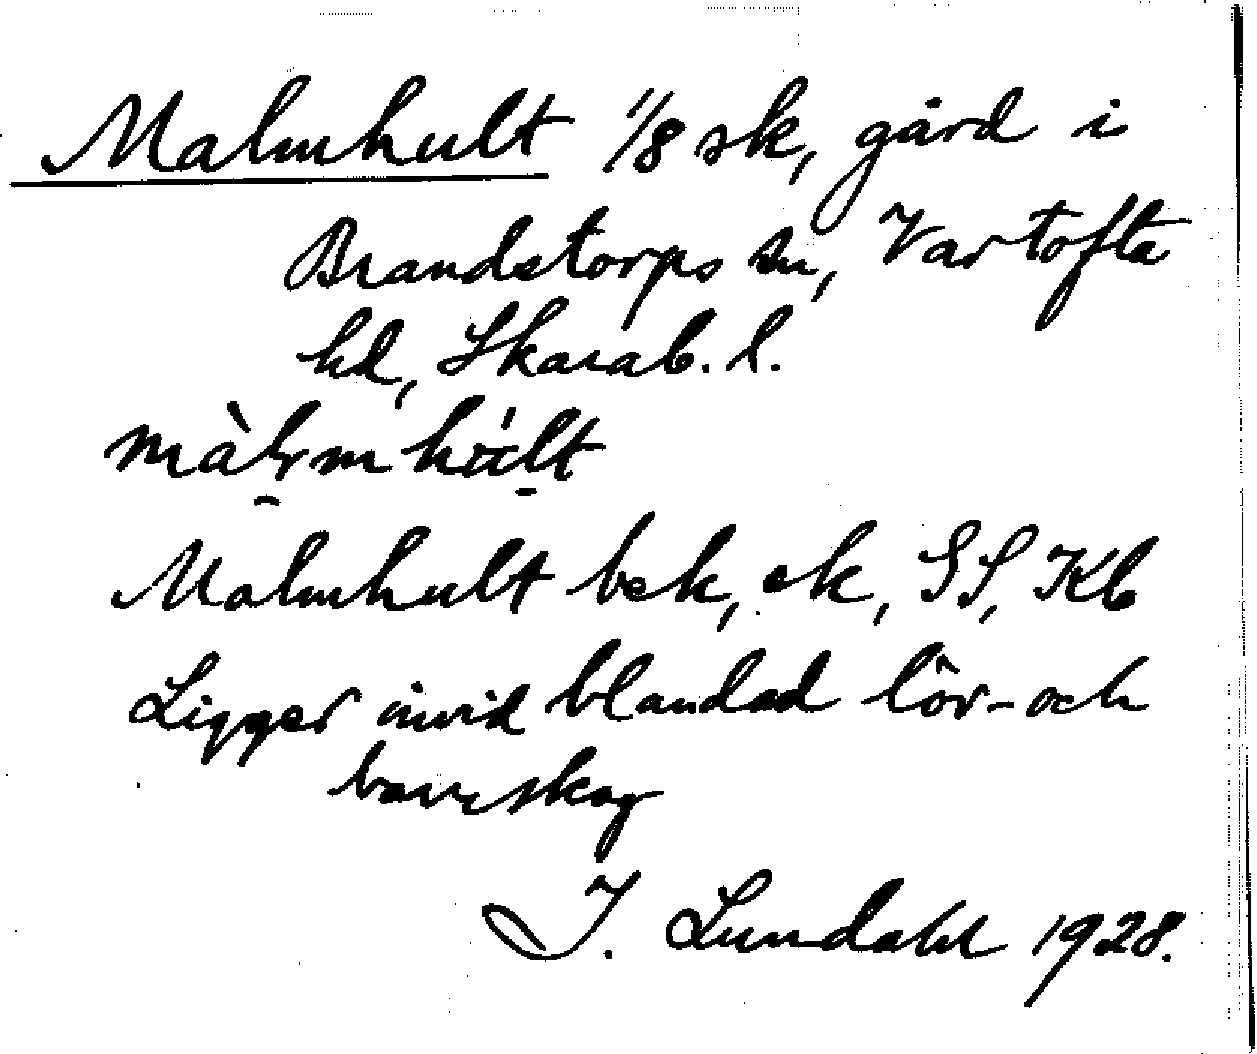 Malmhult 1/8 sk, gård i
Brandstorps sn, Vartofta
hd, Skarab. l.
màlmhúlt
Malmhult bek, ek, GS, Kb
Ligger invid blandad löv- och
barrskog
I. Lundahl 1928.